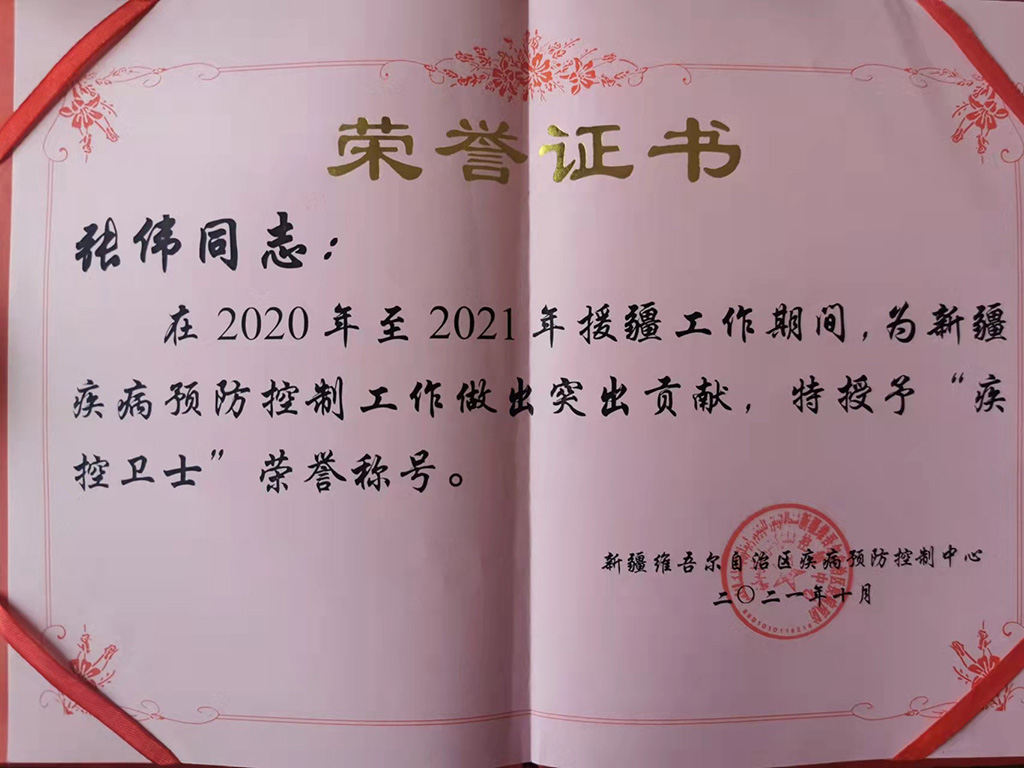 荣誉证书
张伟同志：
在2020年至2021年援疆工作期间，为新疆
疾病预防控制工作做出突出贡献，特授予“疾
控卫士”荣誉称号。
新疆维吾尔自治区疾病预防控制中心
二〇二一年十月